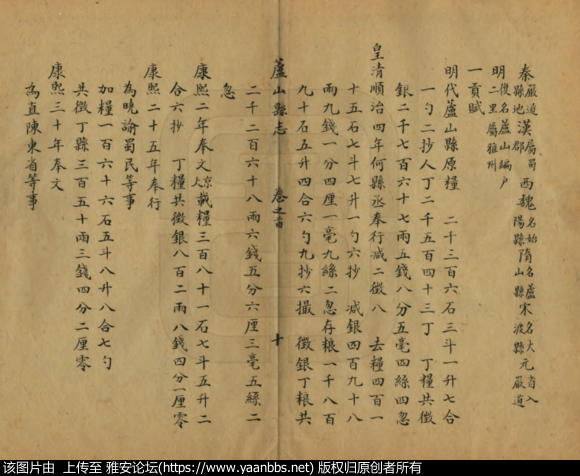 秦嚴道縣地 漢屬蜀郡 西魏名始陽縣 隋名蘆山縣 宋名大渡縣 元省入嚴道
明復名蘆山編戶二里屬雅州
一貢賦
明代蘆山縣原糧 二千三百六石三斗一升七合
一勺二抄人丁二千五百四十三丁 丁糧共徵
銀二千七百六十七兩五錢八分五毫四絲四忽
皇清順治四年何縣丞奉行減二徵八 去糧四百一
十五石七斗七升一勺六抄 減銀四百九十八
兩九錢一分四厘一毫九絲二忽存粮一千八百
九十石五斗四合六勺九抄六撮 徵銀丁粮共
蘆山縣志 卷之首 十
二千二百六十八兩六錢五分六厘三毫五絲二
忽
康熙二年奉文 載糧三百八十一石七斗五升二
合六抄 丁糧共徵銀八百二兩八錢四分一厘零
康熙二十五年奉行
為曉諭蜀民等事
加糧一百六十六石五斗八升八合七勺
共徵丁縣三百五十兩三錢四分二厘零
康熙三十年奉文
為直陳東省等事
该图片由 上传至 雅安论坛(https://www.yaanbbs.net) 版权归原创者所有